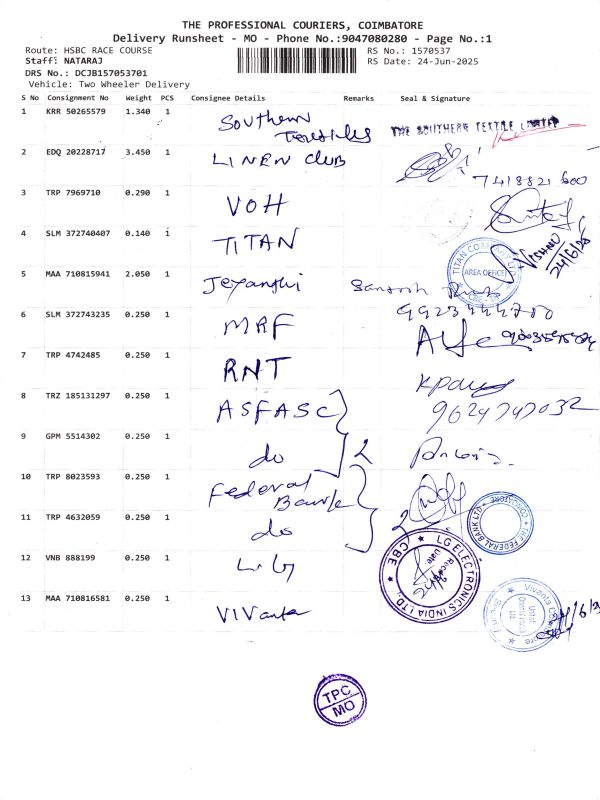 THE PROFESSIONAL COURIERS, COIMBATORE
Delivery Runsheet - MO - Phone No.:9047080280 - Page No.:1
Route: HSBC RACE COURSE
RS No.: 1570537
Staff: NATARAJ
RS Date: 24-Jun-2025
DRS No.: DCJB157053701
Vehicle: Two Wheeler Delivery
S No Consignment No Weight PCS Consignee Details Remarks Seal & Signature
1 KRR 50265579 1.340 1 Southern Textiles THE SOUTHERN TEXTILE LIMITED
2 EDQ 20228717 3.450 1 LINEN CLUB
7418821600
3 TRP 7969710 0.290 1 VOH
4 SLM 372740407 0.140 1 TITAN
VISHNU
24/6/25
TITAN COMPANY
AREA OFFICE
CBE
5 MAA 710815941 2.050 1 Jeyanthi Santosh
6 SLM 372743235 0.250 1 MRF
7 TRP 4742485 0.250 1 RNT
8 TRZ 185131297 0.250 1 ASFASC
9624747032
9 GPM 5514302 0.250 1 do 2
10 TRP 8023593 0.250 1 Federal Bank
THE FEDERAL BANK LTD
11 TRP 4632059 0.250 1 do 2
LG ELECTRONICS INDIA LTD.,
CBE
Date
12 VNB 888199 0.250 1 L.G
13 MAA 710816581 0.250 1 Vivanta
Vivanta
24/6/25
TPC
MO